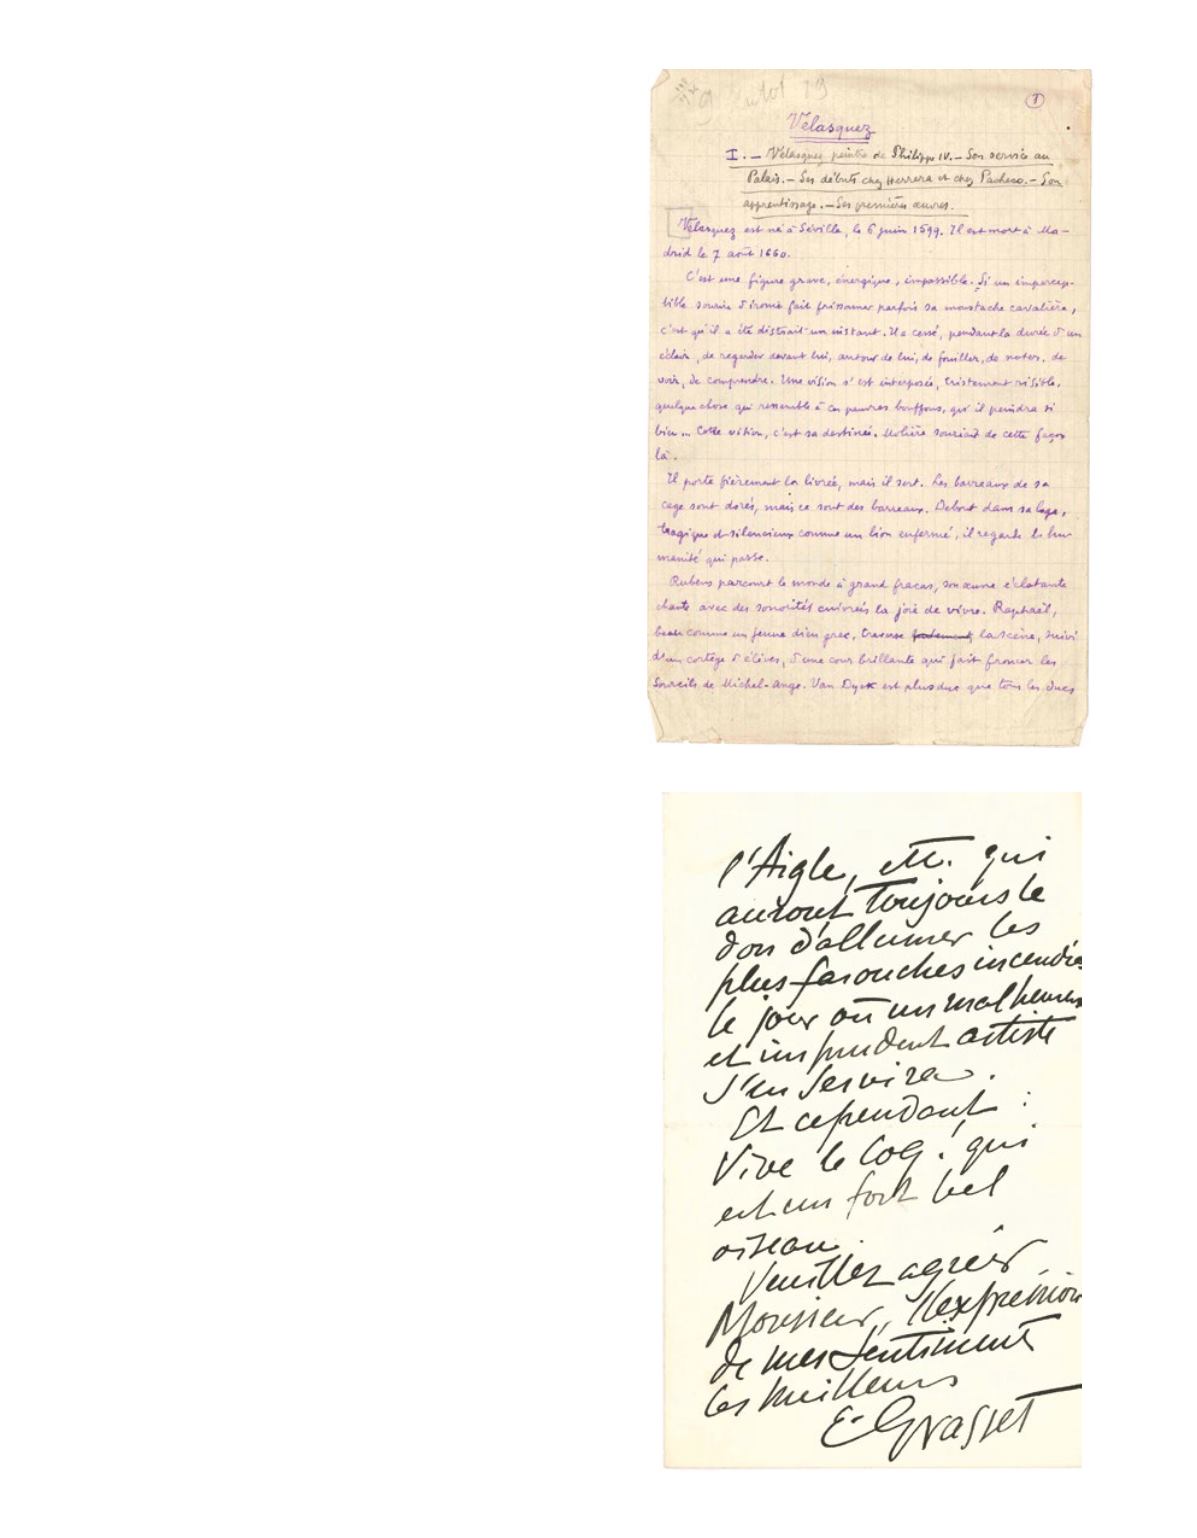 1
Velasquez
I. — Velasquez peintre de Philippe IV. — Son service au
Palais. — Ses débuts chez Herrera et chez Pacheco. — Son
apprentissage. — Ses premières œuvres.
Velasquez est né à Séville, le 6 juin 1599. Il est mort à Ma-
drid le 7 août 1660.
C'est une figure grave, énergique, impassible. Si un impercep-
tible sourire d'ironie fait frissonner parfois sa moustache cavalière,
c'est qu'il a été distrait un instant. Il a cessé, pendant la durée d'un
éclair, de regarder devant lui, autour de lui, de fouiller, de noter, de
voir, de comprendre. Une vision s'est interposée, tristement risible,
quelque chose qui ressemble à ces pauvres bouffons, qu'il peindra si
bien... Cette vision, c'est sa destinée. Molière souriait de cette façon
là.
Il porte fièrement la livrée, mais il sert. Les barreaux de sa
cage sont dorés, mais ce sont des barreaux. Debout dans sa loge,
tragique et silencieux comme un lion enfermé, il regarde l'hu
manité qui passe.
Rubens parcourt le monde à grand fracas, son œuvre éclatante
chante avec des sonorités cuivrées la joie de vivre. Raphaël,
beau comme un jeune dieu grec, traverse la scène, suivi
d'un cortège d'élèves, d'une cour brillante qui fait froncer les
sourcils de Michel-Ange. Van Dyck est plus duc que tous les ducs
l'Aigle, etc. qui
auront toujours le
don d'allumer les
plus farouches incendies
le jour où un malheureux
et imprudent artiste
s'en servira.
Et cependant :
Vive le Coq ! qui
est un fort bel
oiseau.
Veuillez agréer
Monsieur, l'expression
de mes sentiments
les meilleurs
E. Grasset